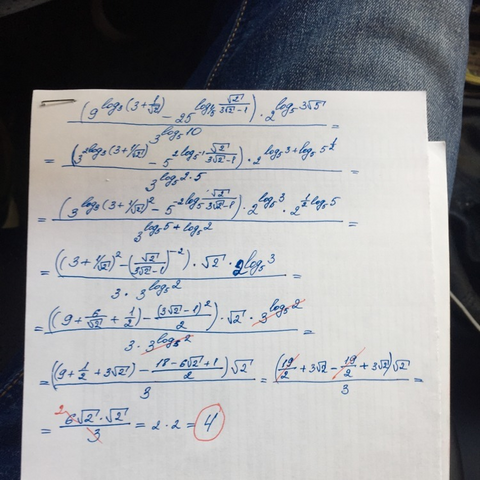 (9^{log₃(3+1/√2)} − 25^{log_{1/5} √2/(3√2−1)}) · 2^{log₅ 3√5} / 3^{log₅ 10} =
= (3^{2log₃(3+1/√2)} − 5^{2log_{5⁻¹} √2/(3√2−1)}) · 2^{log₅3+log₅5^{1/2}} / 3^{log₅ 2·5} =
= (3^{log₃(3+1/√2)²} − 5^{−2log₅ √2/(3√2−1)}) · 2^{log₅3} · 2^{½log₅5} / 3^{log₅5+log₅2} =
= ((3+1/√2)² − (√2/(3√2−1))^{−2}) · √2 · 2^{log₅3} / 3·3^{log₅2} =
= ((9+6/√2+1/2) − (3√2−1)²/2) · √2 · 3^{log₅2} / 3·3^{log₅2} =
= ((9+1/2+3√2) − (18−6√2+1)/2) √2 / 3 = (19/2+3√2−19/2+3√2)√2 / 3 =
= 2 6√2·√2 / 3 = 2·2 = 4